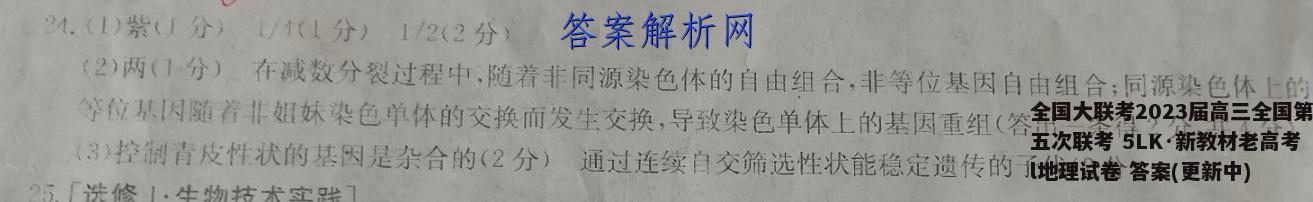 24.(1)紫(1分) 1/4(1分) 1/2(2分)
答案解析网
(2)两(1分) 在减数分裂过程中,随着非同源染色体的自由组合,非等位基因自由组合;同源染色体上的
等位基因随着非姐妹染色单体的交换而发生交换,导致染色单体上的基因重组(答
(3)控制青皮性状的基因是杂合的(2分) 通过连续自交筛选性状能稳定遗传的子
25.[选修1·生物技术实践]
全国大联考2023届高三全国第
五次联考 5LK·新教材老高考
l地理试卷 答案(更新中)